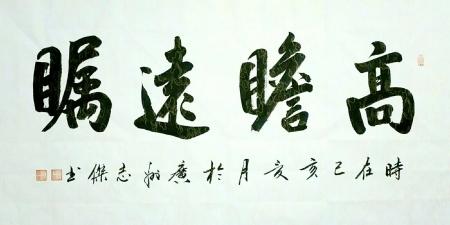 高瞻遠矚
時在己亥夏月於廣州志傑書